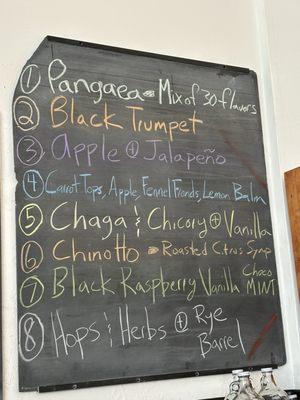 ① Pangaea - Mix of 30 flavors
② Black Trumpet
③ Apple + Jalapeño
④ Carrot Tops, Apple, Fennel Fronds, Lemon Balm
⑤ Chaga & Chicory + Vanilla
⑥ Chinotto - Roasted Citrus Syrup
⑦ Black Raspberry Vanilla Choco
MINT
⑧ Hops & Herbs + Rye
Barrel